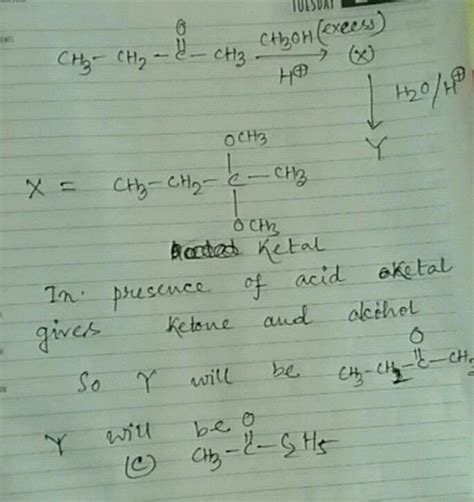 TUESDAY
O
CH3-CH2-C-CH3 CH3OH(excess) (X)
H⊕
H2O/H⊕
Y
OCH3
X = CH3-CH2-C-CH3
OCH3
Ketal
In presence of acid ketal
gives ketone and alcohol
O
So Y will be CH3-CH2-C-CH3
Y will be O
(C) CH3-C-C2H5